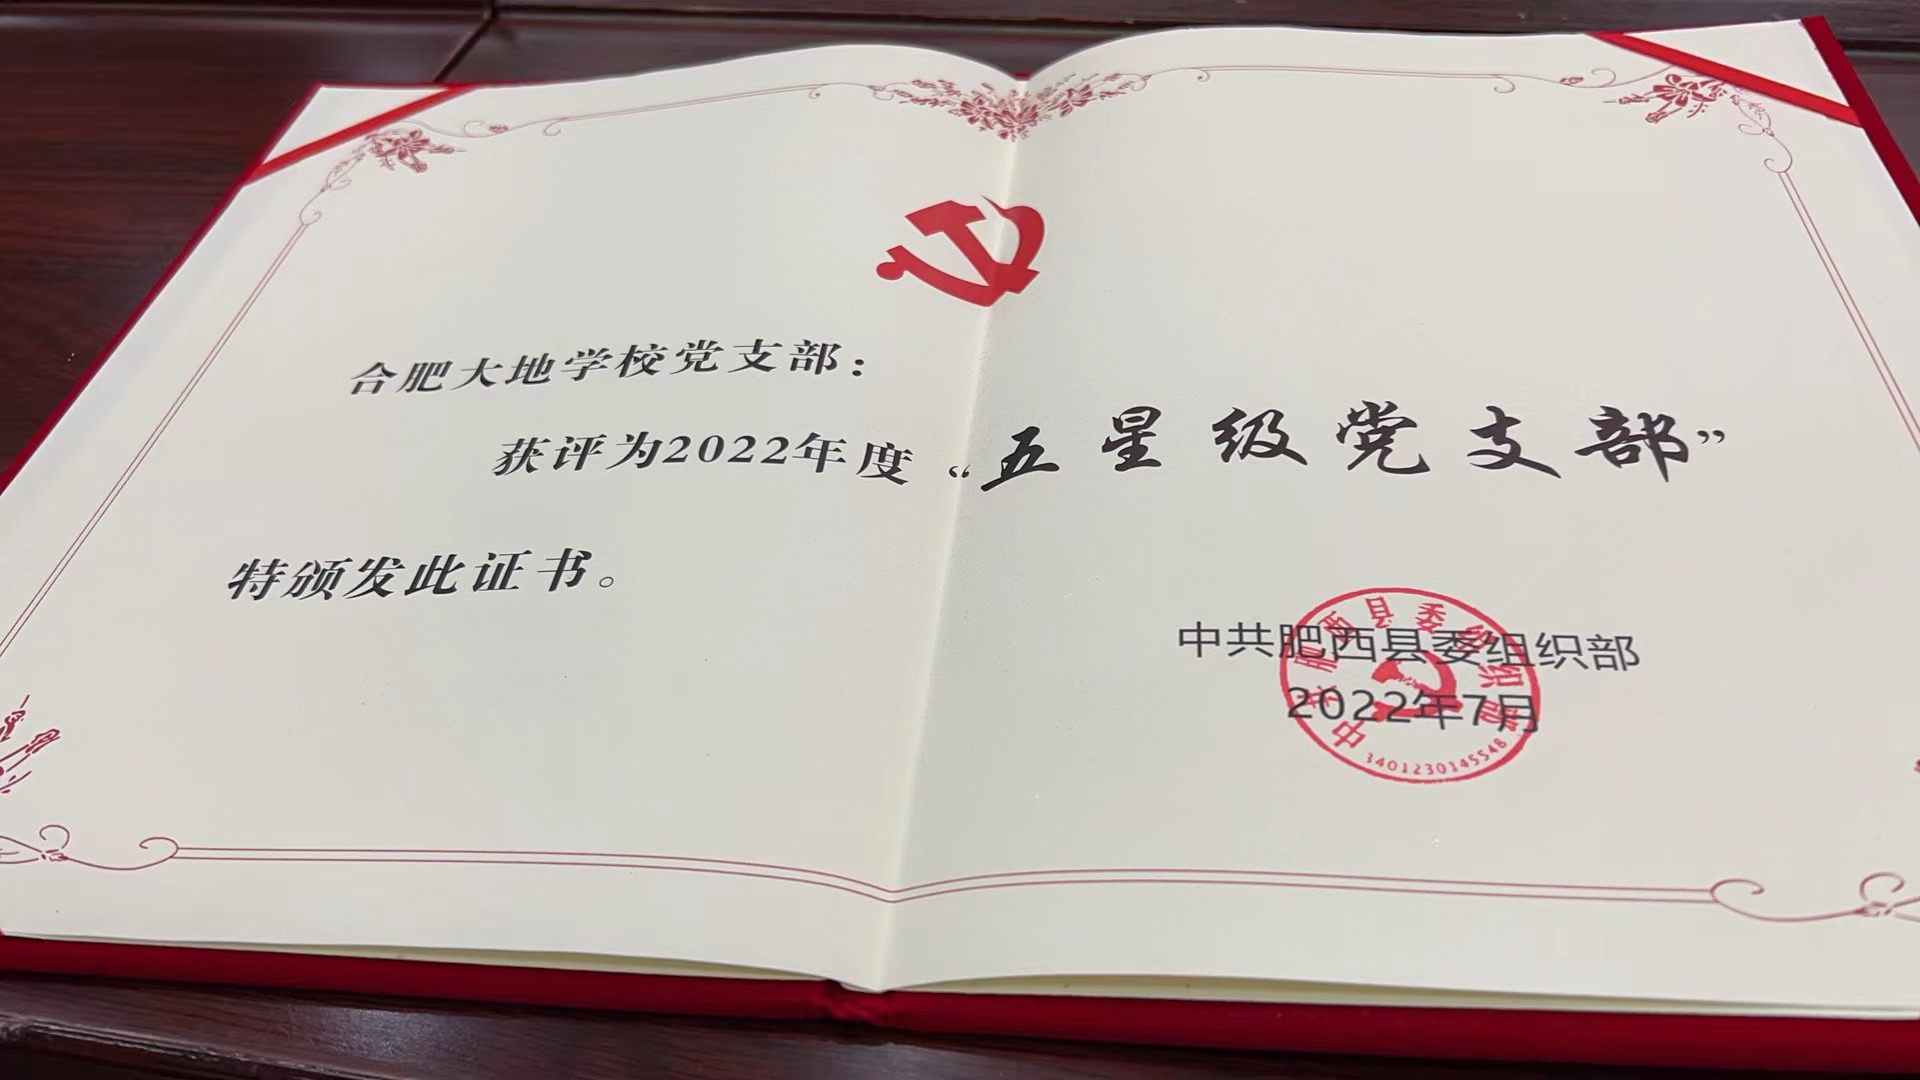 合肥大地学校党支部：
获评为2022年度“五星级党支部”
特颁发此证书。
中共肥西县委组织部
2022年7月
中共肥西县委组织部
3401230145548